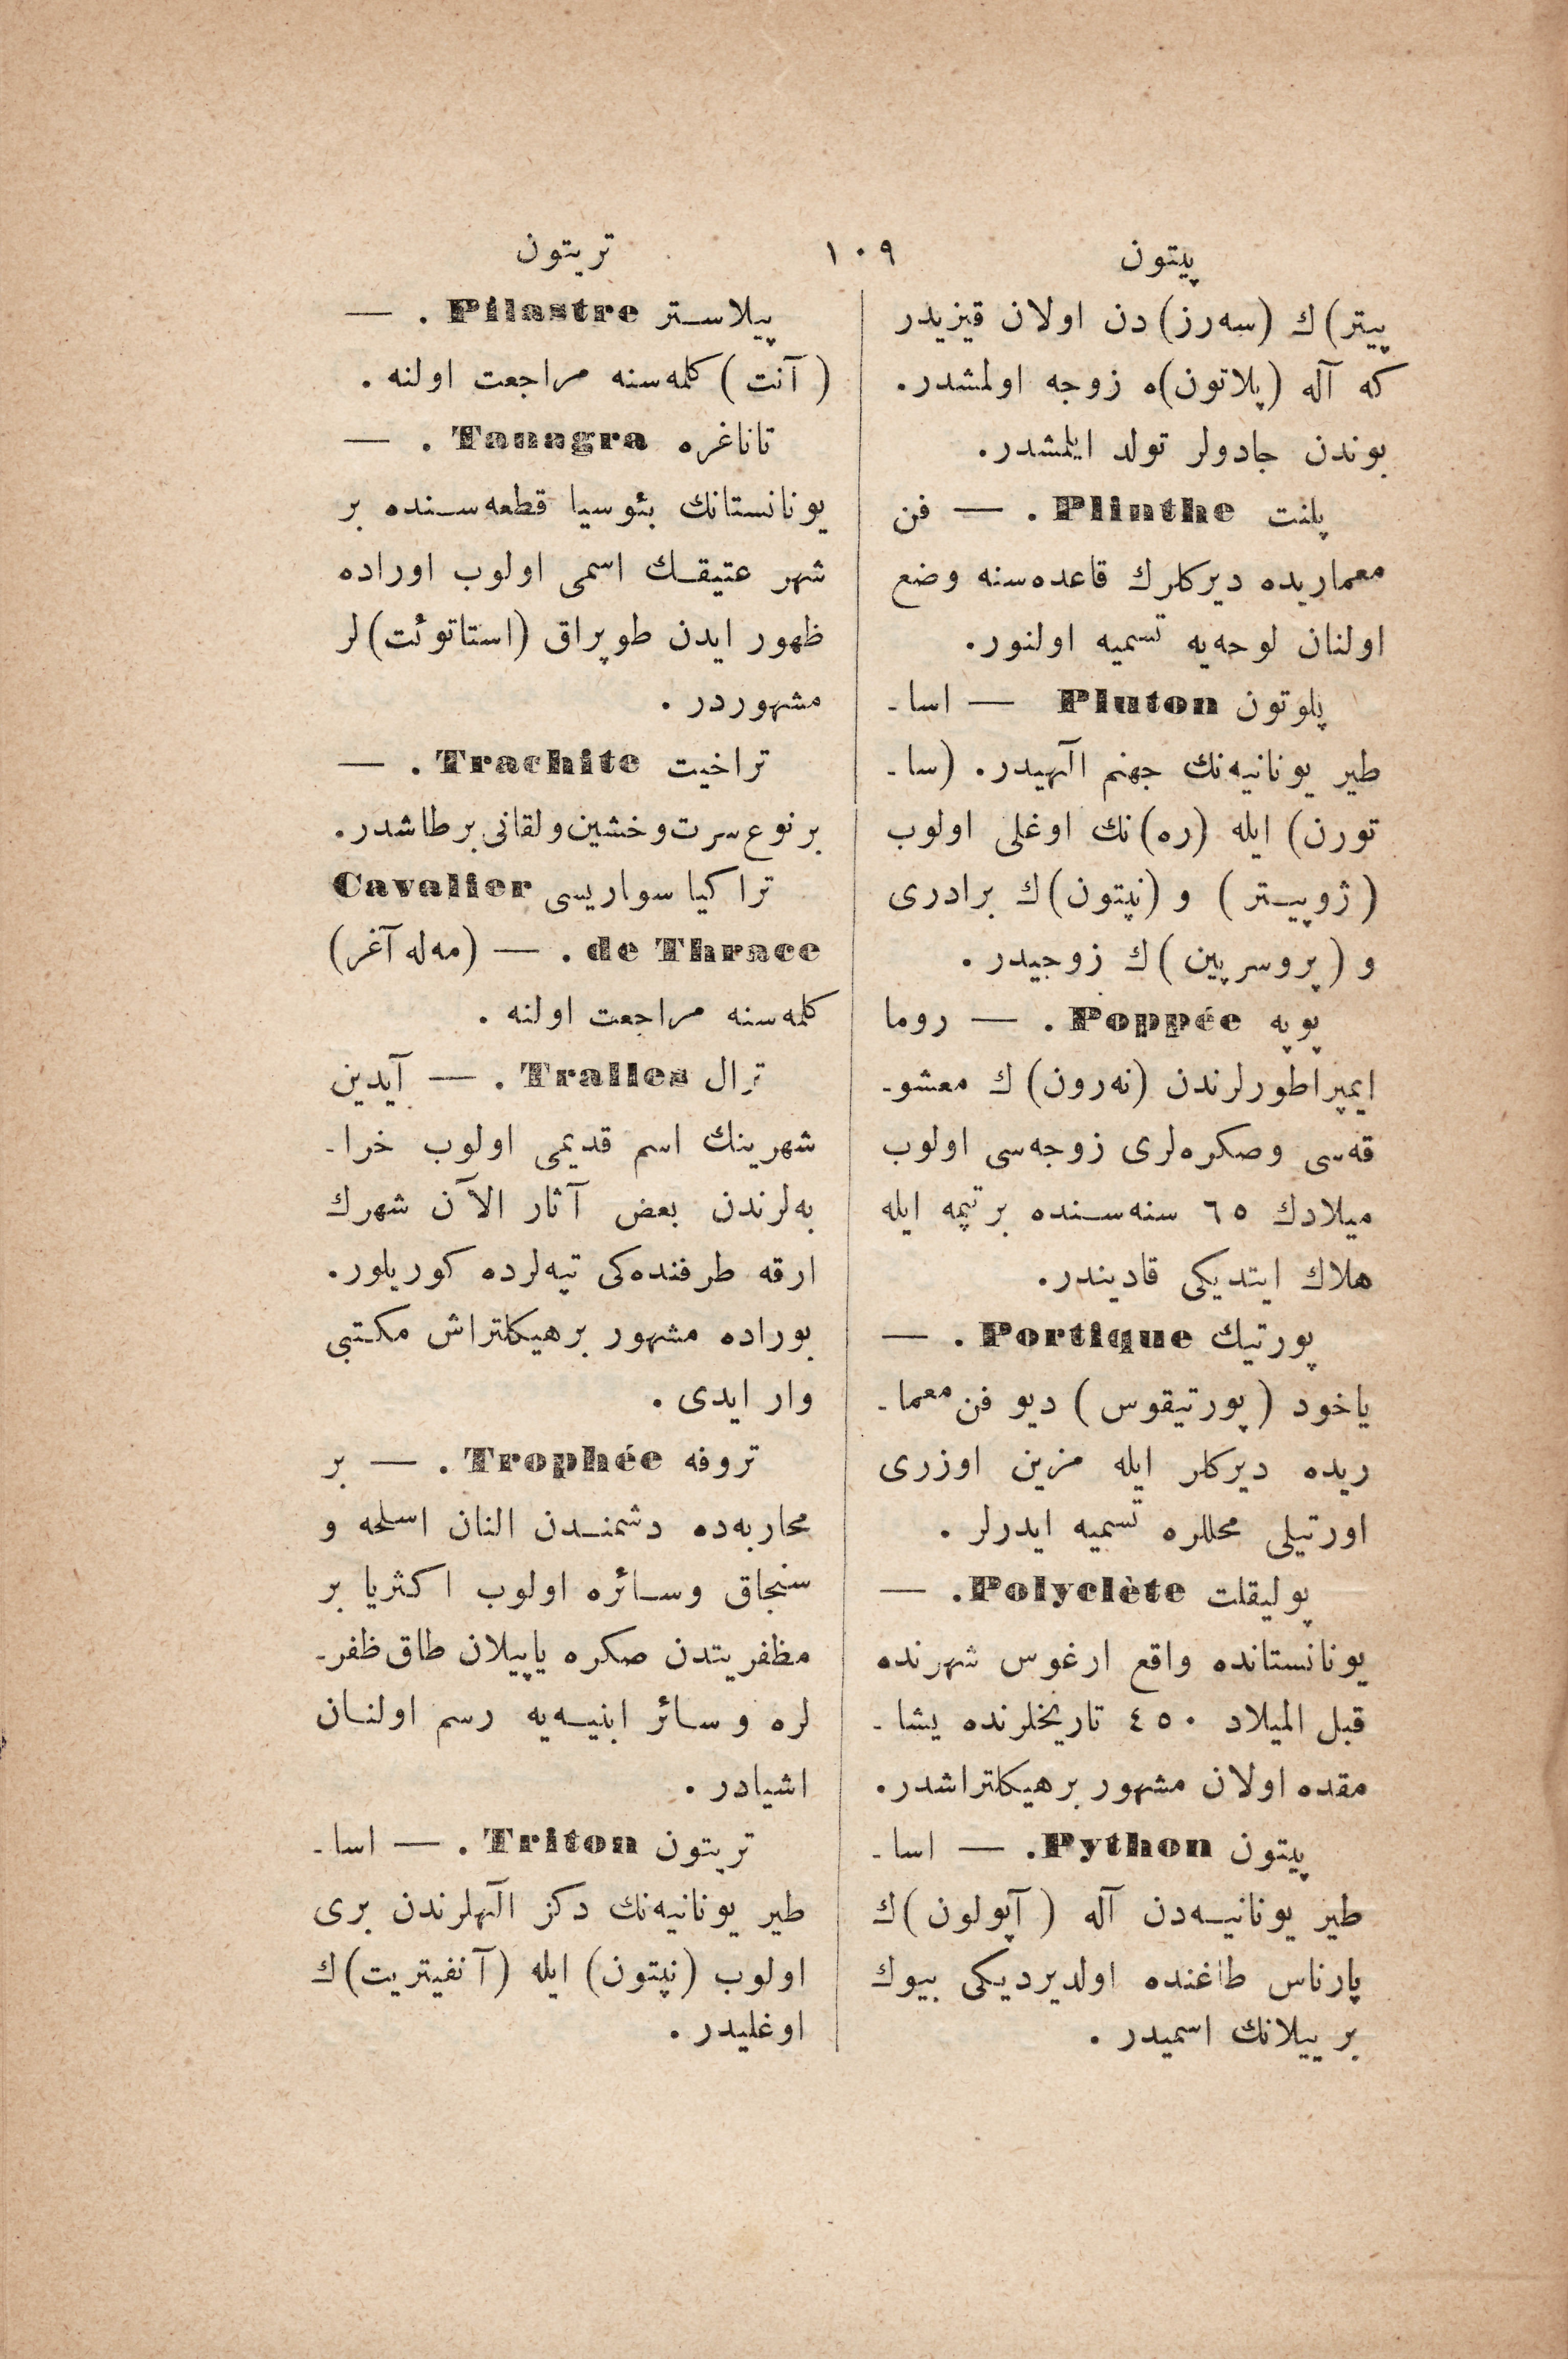 پيتون
١٠٩
تريتون
پيتر)ك (سه‌رز)دن اولان قيزيدر
كه آله (پلاتون)ه زوجه اولمشدر.
بوندن جادولر تولد ايلمشدر.
پلنت Plinthe . — فن
معماريده ديركلرك قاعده‌سنه وضع
اولنان لوحه‌يه تسميه اولنور.
پلوتون Pluton — اسا-
طير يونانيه‌نك جهنم الٓهيدر. (سا-
تورن) ايله (ره)نك اوغلى اولوب
(ژوپيتر) و (نپتون)ك برادرى
و (پروسرپين)ك زوجيدر .
پوپه Poppée . — روما
ايمپراطورلرندن (نه‌رون)ك معشو-
قه‌سى وصكره‌لرى زوجه‌سى اولوب
ميلادك ٦٥ سنه‌سنده برتپمه ايله
هلاك ايتديكى قاديندر.
پورتيك Portique . —
ياخود (پورتيقوس) ديو فن معما-
ريده ديركلر ايله مزين اوزرى
اورتيلى محللره تسميه ايدرلر .
پوليقلت Polyclète. —
يونانستانده واقع ارغوس شهرنده
قبل الميلاد ٤٥٠ تاريخلرنده يشا-
مقده اولان مشهور برهيكلتراشدر.
پيتون Python. — اسا-
طير يونانيه‌دن آله (آپولون)ك
پارناس طاغنده اولديرديكى بيوك
بر ييلانك اسميدر .
پيلاستر Pilastre . —
(آنت) كلمه‌سنه مراجعت اولنه .
تاناغره Tanagra . —
يونانستانك بئوسيا قطعه‌سنده بر
شهر عتيقك اسمى اولوب اوراده
ظهور ايدن طوپراق (استاتوئت)لر
مشهوردر .
تراخيت Trachite . —
برنوع سرت وخشين ولقانى برطاشدر.
تراكيا سواريسى Cavalier
de Thrace . — (مه‌له آغر)
كلمه‌سنه مراجعت اولنه .
ترال Tralles . — آيدين
شهرينك اسم قديمى اولوب خرا-
به‌لرندن بعض آثار الآن شهرك
ارقه طرفنده‌كى تپه‌لرده كوريلور.
بوراده مشهور برهيكلتراش مكتبى
وار ايدى .
تروفه Trophée . — بر
محاربه‌ده دشمندن النان اسلحه و
سنجاق وسائره اولوب اكثريا بر
مظفريتدن صكره ياپيلان طاق ظفر-
لره وسائر ابنيه‌يه رسم اولنان
اشيادر .
تريتون Triton . — اسا-
طير يونانيه‌نك دكز الٓهلرندن برى
اولوب (نپتون) ايله (آنفيتريت)ك
اوغليدر .